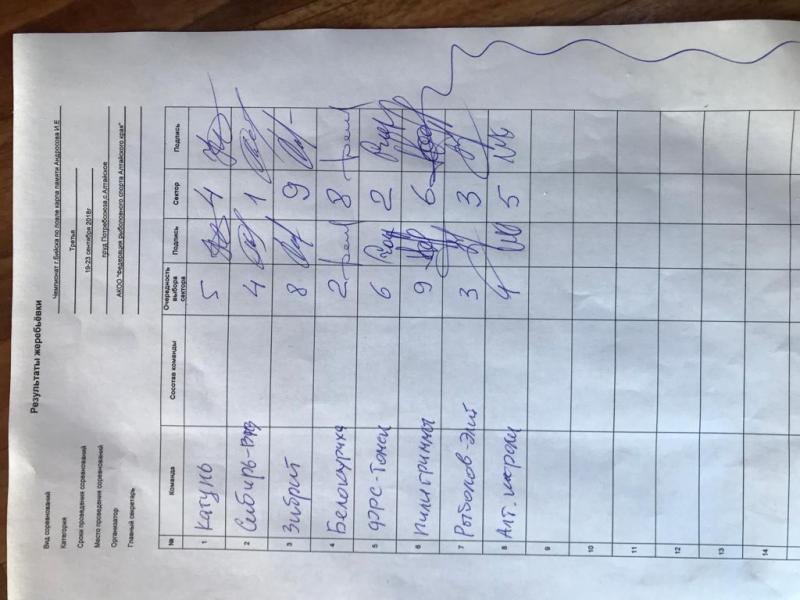 Результаты жеребьёвки
Вид соревнований Чемпионат г.Бийска по ловле карпа памяти Андросова И.Е
Категория Третья
Сроки проведения соревнований 19-23 сентября 2018г
Место проведения соревнований пруд Потребсоюза с.Алтайское
Организатор АКОО "Федерация рыболовного спорта Алтайского края"
Главный секретарь
№ Команда Состав команды Очередность выбора сектора Подпись Сектор Подпись
1 Катунь 5 4
2 Сибирь- 4 1
3 Зибрит 8 9
4 Белокуриха 2 8
5 ФЭРС- 6 2
6 Пилигримы 9 6
7 Рыболов-Элит 3 3
8 Алт. 4 5
9
10
11
12
13
14